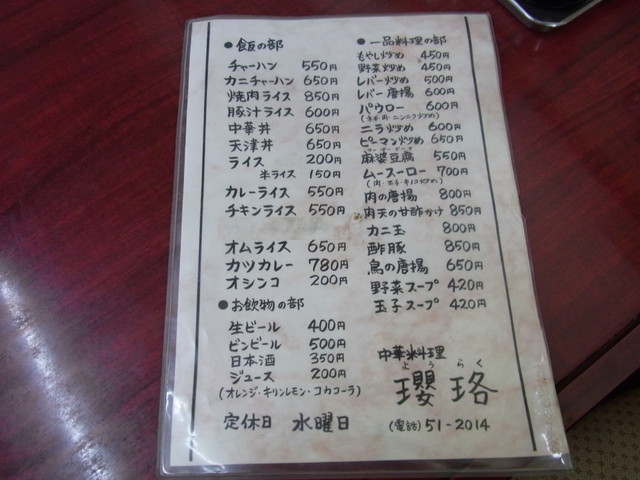 ●飯の部
チャーハン 550円
カニチャーハン 650円
焼肉ライス 850円
豚汁ライス 600円
中華丼 650円
天津丼 650円
ライス 200円
半ライス 150円
カレーライス 550円
チキンライス 550円
オムライス 650円
カツカレー 780円
オシンコ 200円
●お飲物の部
生ビール 400円
ビンビール 500円
日本酒 350円
ジュース 200円
(オレンジ・キリンレモン・コカコーラ)
定休日 水曜日
●一品料理の部
もやし炒め 450円
野菜炒め 450円
レバー炒め 500円
レバー唐揚 600円
パウロー 600円
ニラ炒め 600円
ピーマン炒め 650円
麻婆豆腐 550円
ムースーロー 700円
(肉・玉子・キノコ炒め)
肉の唐揚 800円
肉天の甘酢かけ 850円
カニ玉 800円
酢豚 850円
鳥の唐揚 650円
野菜スープ 420円
玉子スープ 420円
中華料理
ようらく
瓔珞
(電話) 51-2014